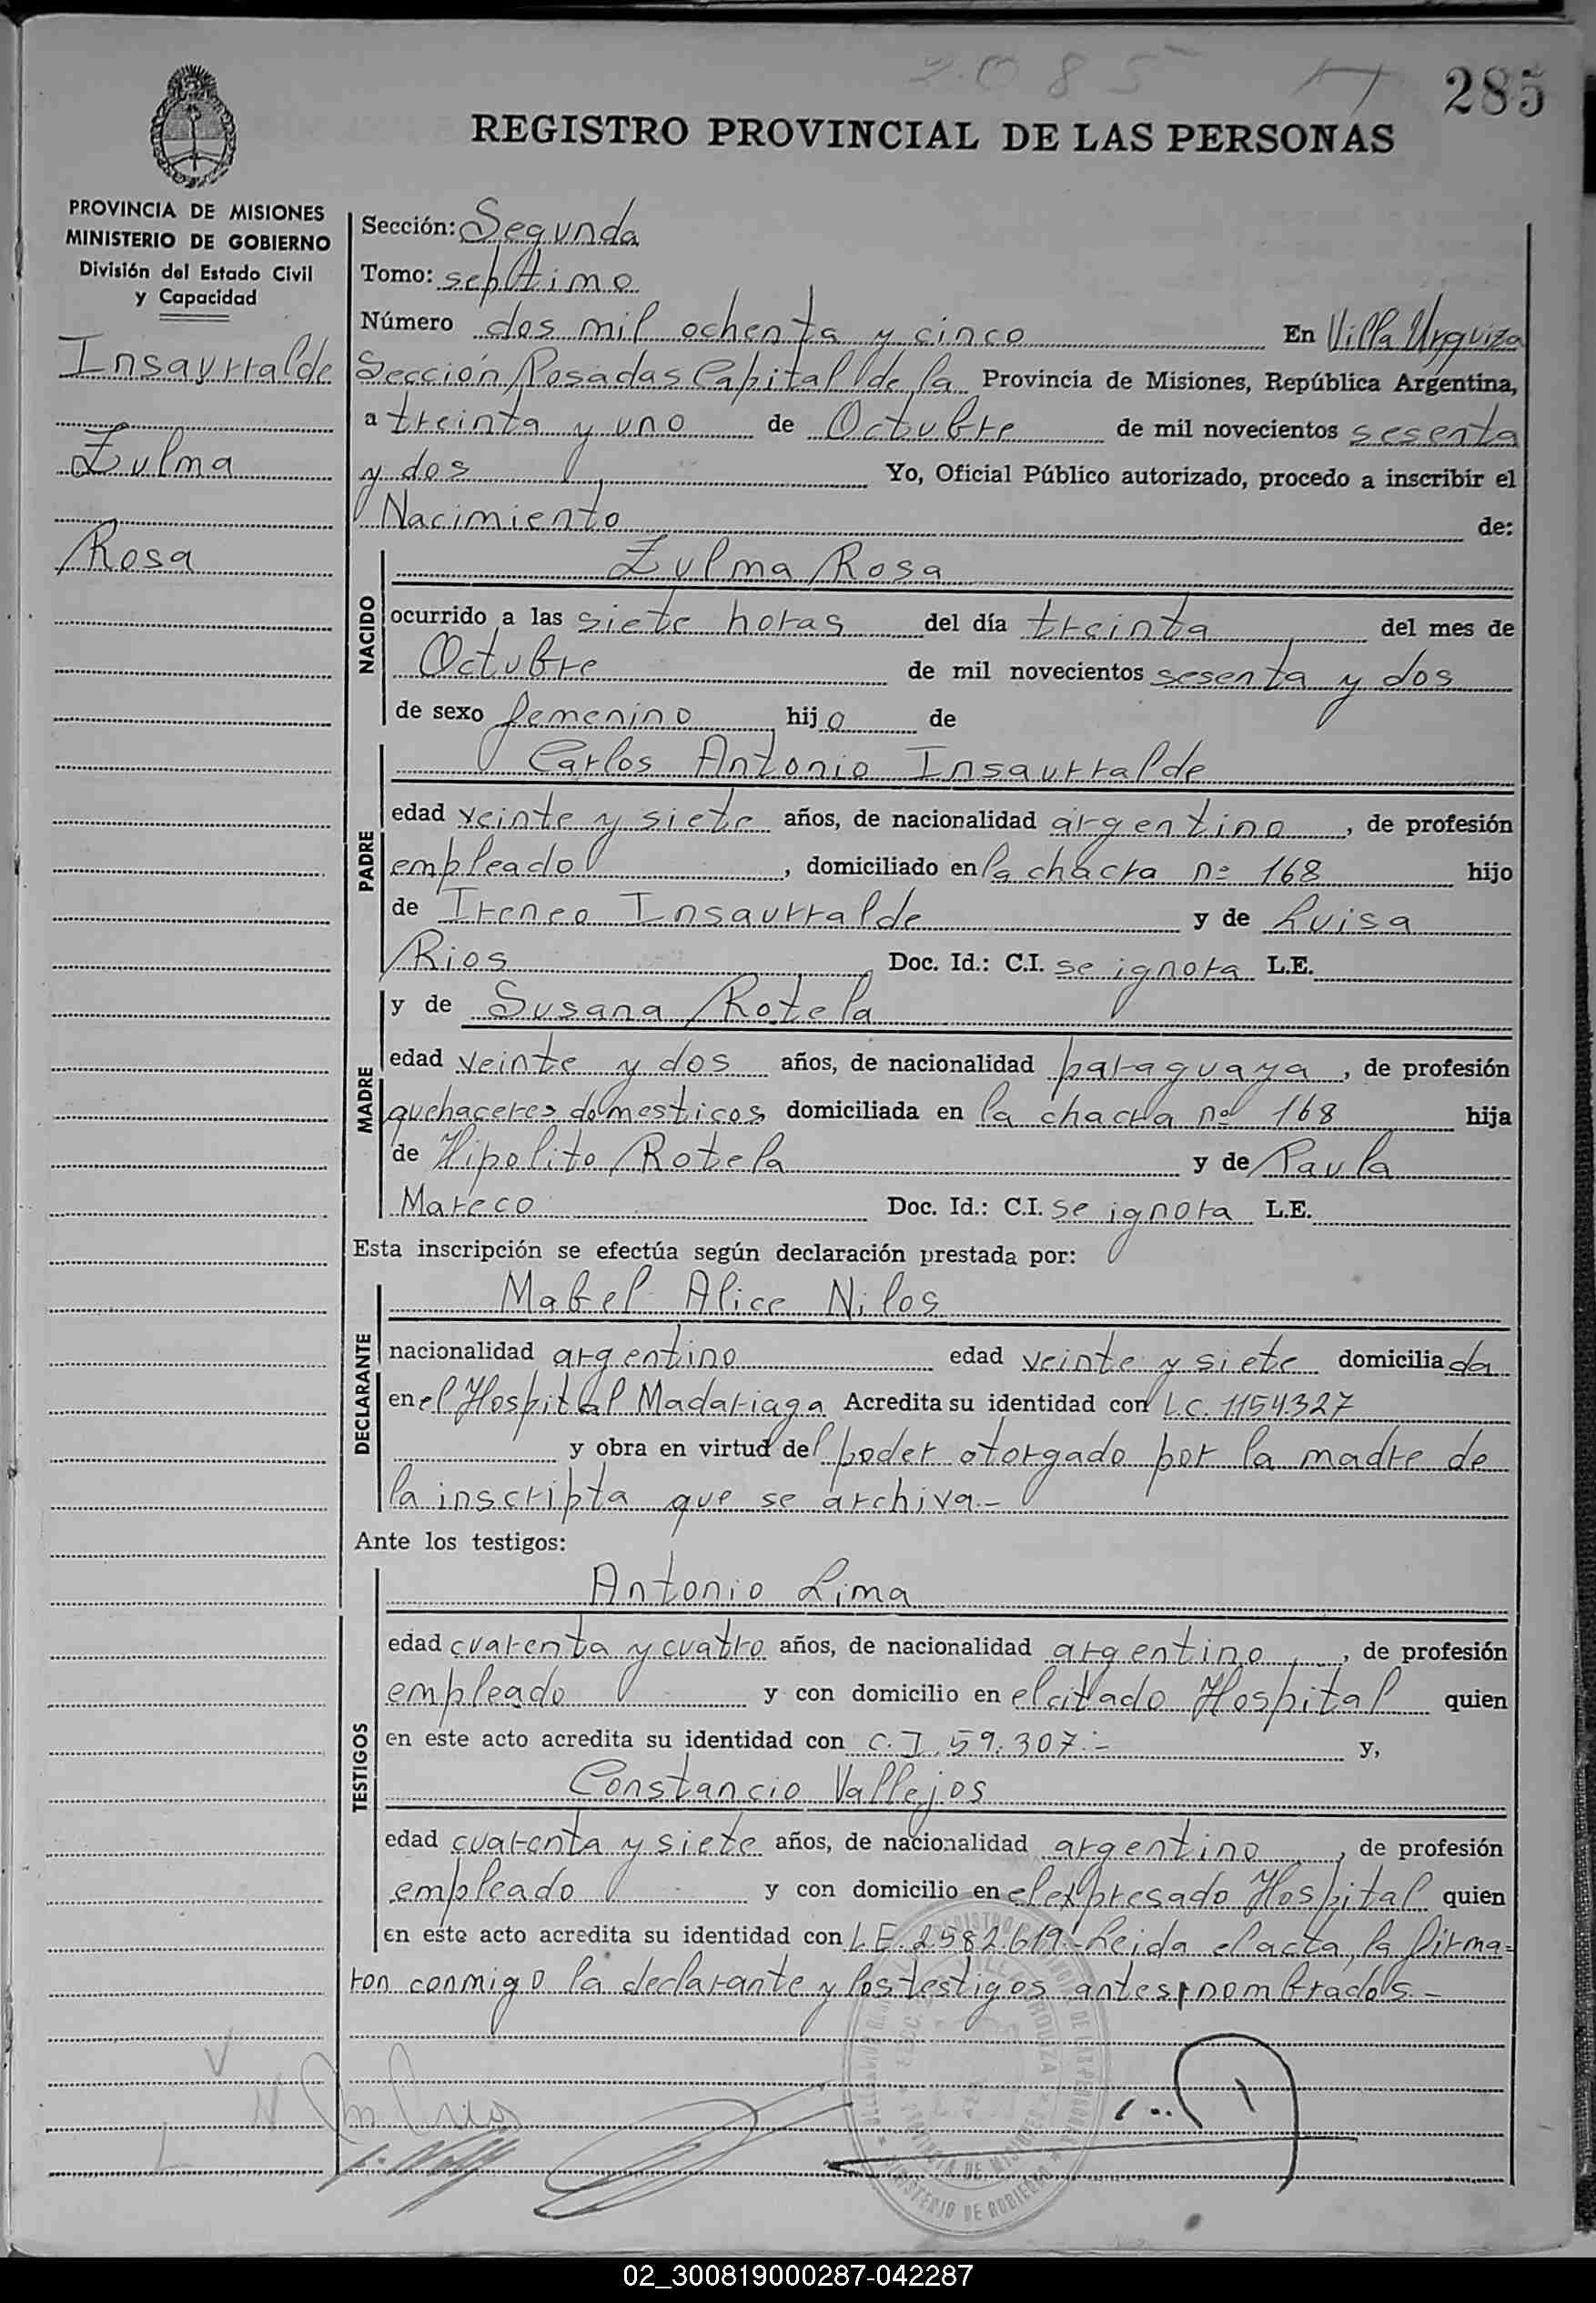 2085
285
REGISTRO PROVINCIAL DE LAS PERSONAS
PROVINCIA DE MISIONES
MINISTERIO DE GOBIERNO
División del Estado Civil
y Capacidad
Insaurralde
Zulma
Rosa
Sección: Segunda
Tomo: septimo
Número dos mil ochenta y cinco En Villa Urquiza
Sección Posadas Capital de la Provincia de Misiones, República Argentina,
a treinta y uno de Octubre de mil novecientos sesenta
y dos Yo, Oficial Público autorizado, procedo a inscribir el
Nacimiento de:
NACIDO
Zulma Rosa
ocurrido a las siete horas del día treinta del mes de
Octubre de mil novecientos sesenta y dos
de sexo femenino hijo de
PADRE
Carlos Antonio Insaurralde
edad veinte y siete años, de nacionalidad argentino, de profesión
empleado, domiciliado en la chacra nº 168 hijo
de Ireneo Insaurralde y de Luisa
Rios Doc. Id.: C.I. se ignora L.E.
MADRE
y de Susana Rotela
edad veinte y dos años, de nacionalidad paraguaya, de profesión
quehaceres domesticos domiciliada en la chacra nº 168 hija
de Hipolito Rotela y de Paula
Mareco Doc. Id.: C.I. se ignora L.E.
Esta inscripción se efectúa según declaración prestada por:
DECLARANTE
Mabel Alice Nilos
nacionalidad argentino edad veinte y siete domiciliada
en el Hospital Madariaga Acredita su identidad con L.C. 1154327
y obra en virtud del poder otorgado por la madre de
la inscripta que se archiva.-
Ante los testigos:
TESTIGOS
Antonio Lima
edad cuarenta y cuatro años, de nacionalidad argentino, de profesión
empleado y con domicilio en el citado Hospital quien
en este acto acredita su identidad con C.I. 59.307.- y,
Constancio Vallejos
edad cuarenta y siete años, de nacionalidad argentino, de profesión
empleado y con domicilio en el expresado Hospital quien
en este acto acredita su identidad con L.E. 2582.619.- Leida el acta, la firma=
ron conmigo la declarante y los testigos antes nombrados.-
02_300819000287-042287